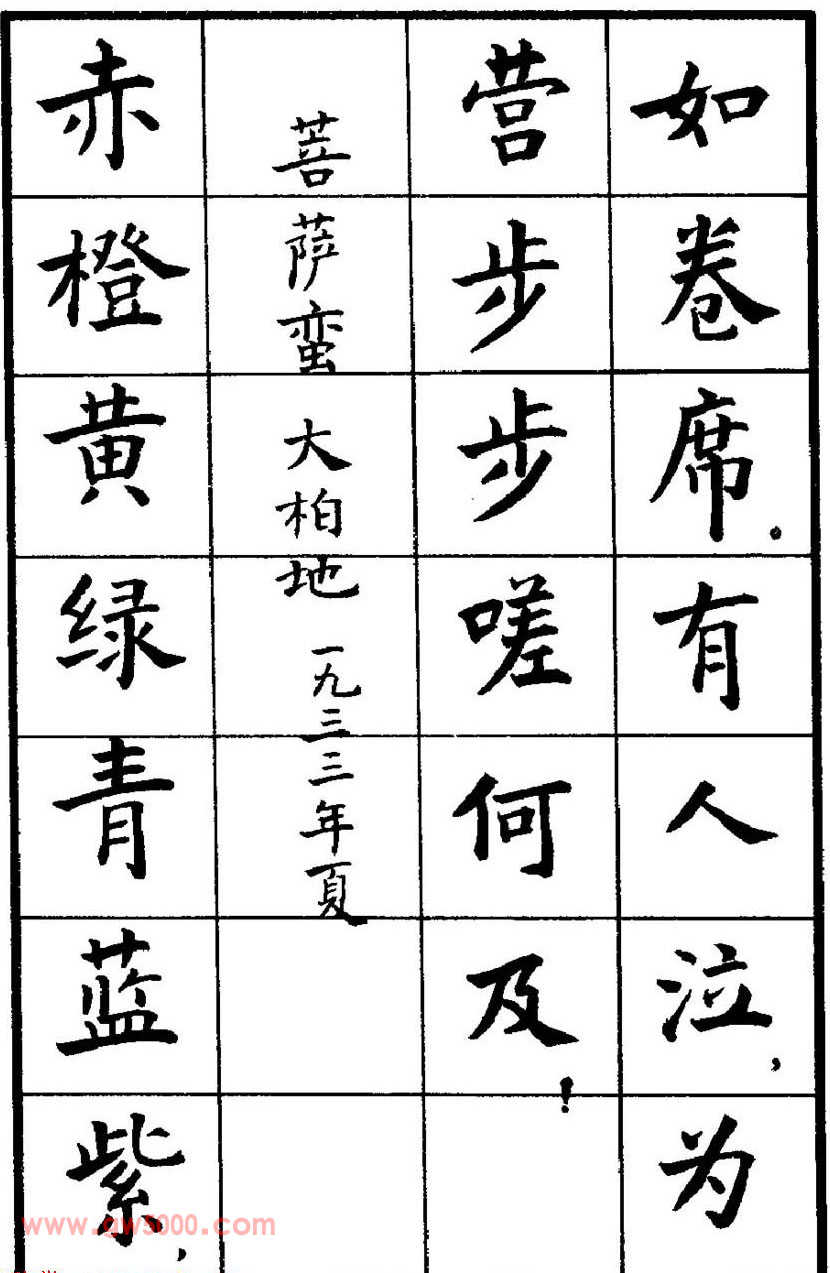 如卷席。有人泣，为
营步步嗟何及！
菩萨蛮 大柏地 一九三三年夏
赤橙黄绿青蓝紫，
www.gw5000.com